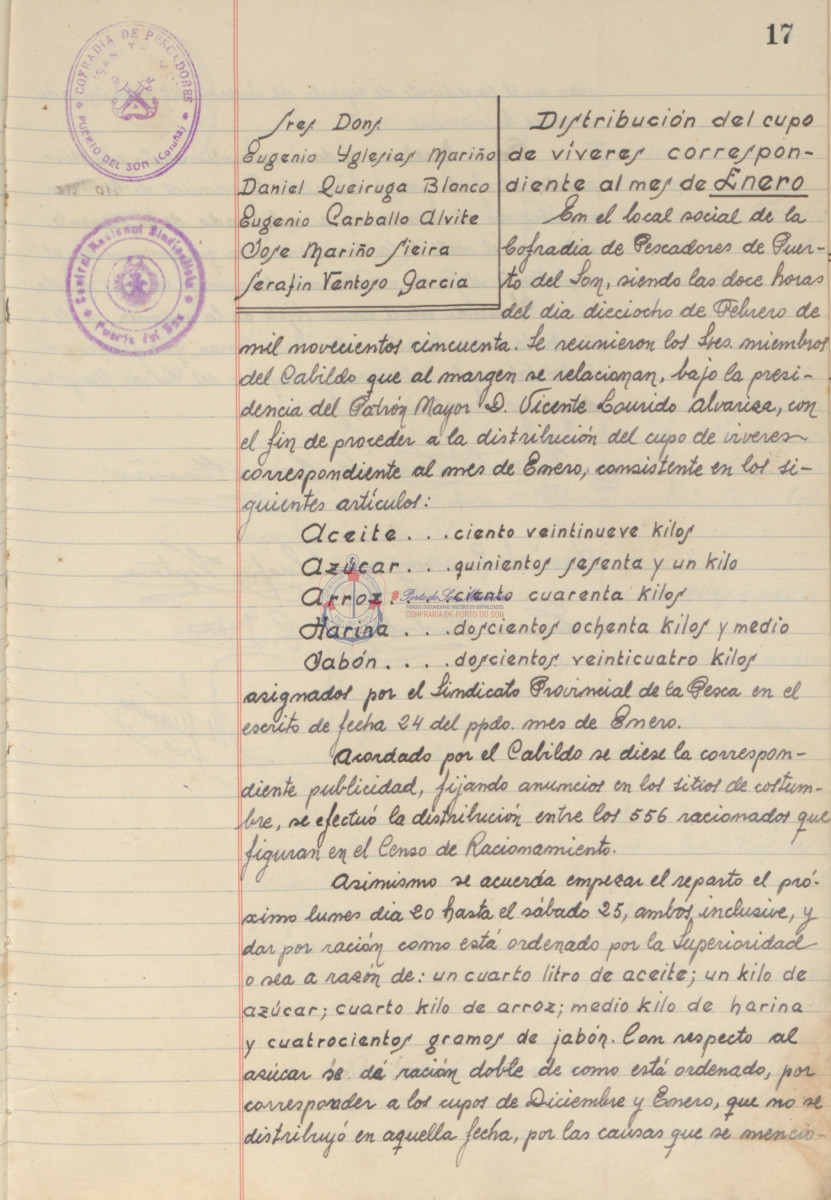 17
COFRADIA DE PESCADORES
PUERTO DEL SON (Coruña)
Central Nacional Sindicalista
Puerto del Son
Sres Dons
Eugenio Yglesias Mariño
Daniel Queiruga Blanco
Eugenio Carballo Alvite
Jose Mariño Sieira
Serafin Ventoso Garcia
Distribución del cupo
de víveres correspon-
diente al mes de Enero
En el local social de la
Cofradia de Pescadores de Puer-
to del Son, siendo las doce horas
del dia dieciocho de Febrero de
mil novecientos cincuenta. Se reunieron los Sres. miembros
del Cabildo que al margen se relacionan, bajo la presi-
dencia del Patrón Mayor D. Vicente Lourido Alvariza, con
el fin de proceder a la distribución del cupo de viveres
correspondiente al mes de Enero, consistente en los si-
guientes artículos:
Aceite . . . ciento veintinueve kilos
Azúcar . . . quinientos sesenta y un kilo
Arroz . . . ciento cuarenta kilos
Harina . . . doscientos ochenta kilos y medio
Jabón . . . . doscientos veinticuatro kilos
CONFRARIA DE PORTO DO SON
asignados por el Sindicato Provincial de la Pesca en el
escrito de fecha 24 del ppdo. mes de Enero.
Acordado por el Cabildo se diese la correspon-
diente publicidad, fijando anuncios en los sitios de costum-
bre, se efectuó la distribución entre los 556 racionados que
figuran en el Censo de Racionamiento.
Asimismo se acuerda empezar el reparto el pró-
ximo lunes dia 20 hasta el sábado 25, ambos inclusive, y
dar por ración como está ordenado por la Superioridad
o sea a razón de: un cuarto litro de aceite; un kilo de
azúcar; cuarto kilo de arroz; medio kilo de harina
y cuatrocientos gramos de jabón. Con respecto al
asúcar se dé ración doble de como está ordenado, por
corresponder a los cupos de Diciembre y Enero, que no se
distribuyó en aquella fecha, por las causas que se mencio-